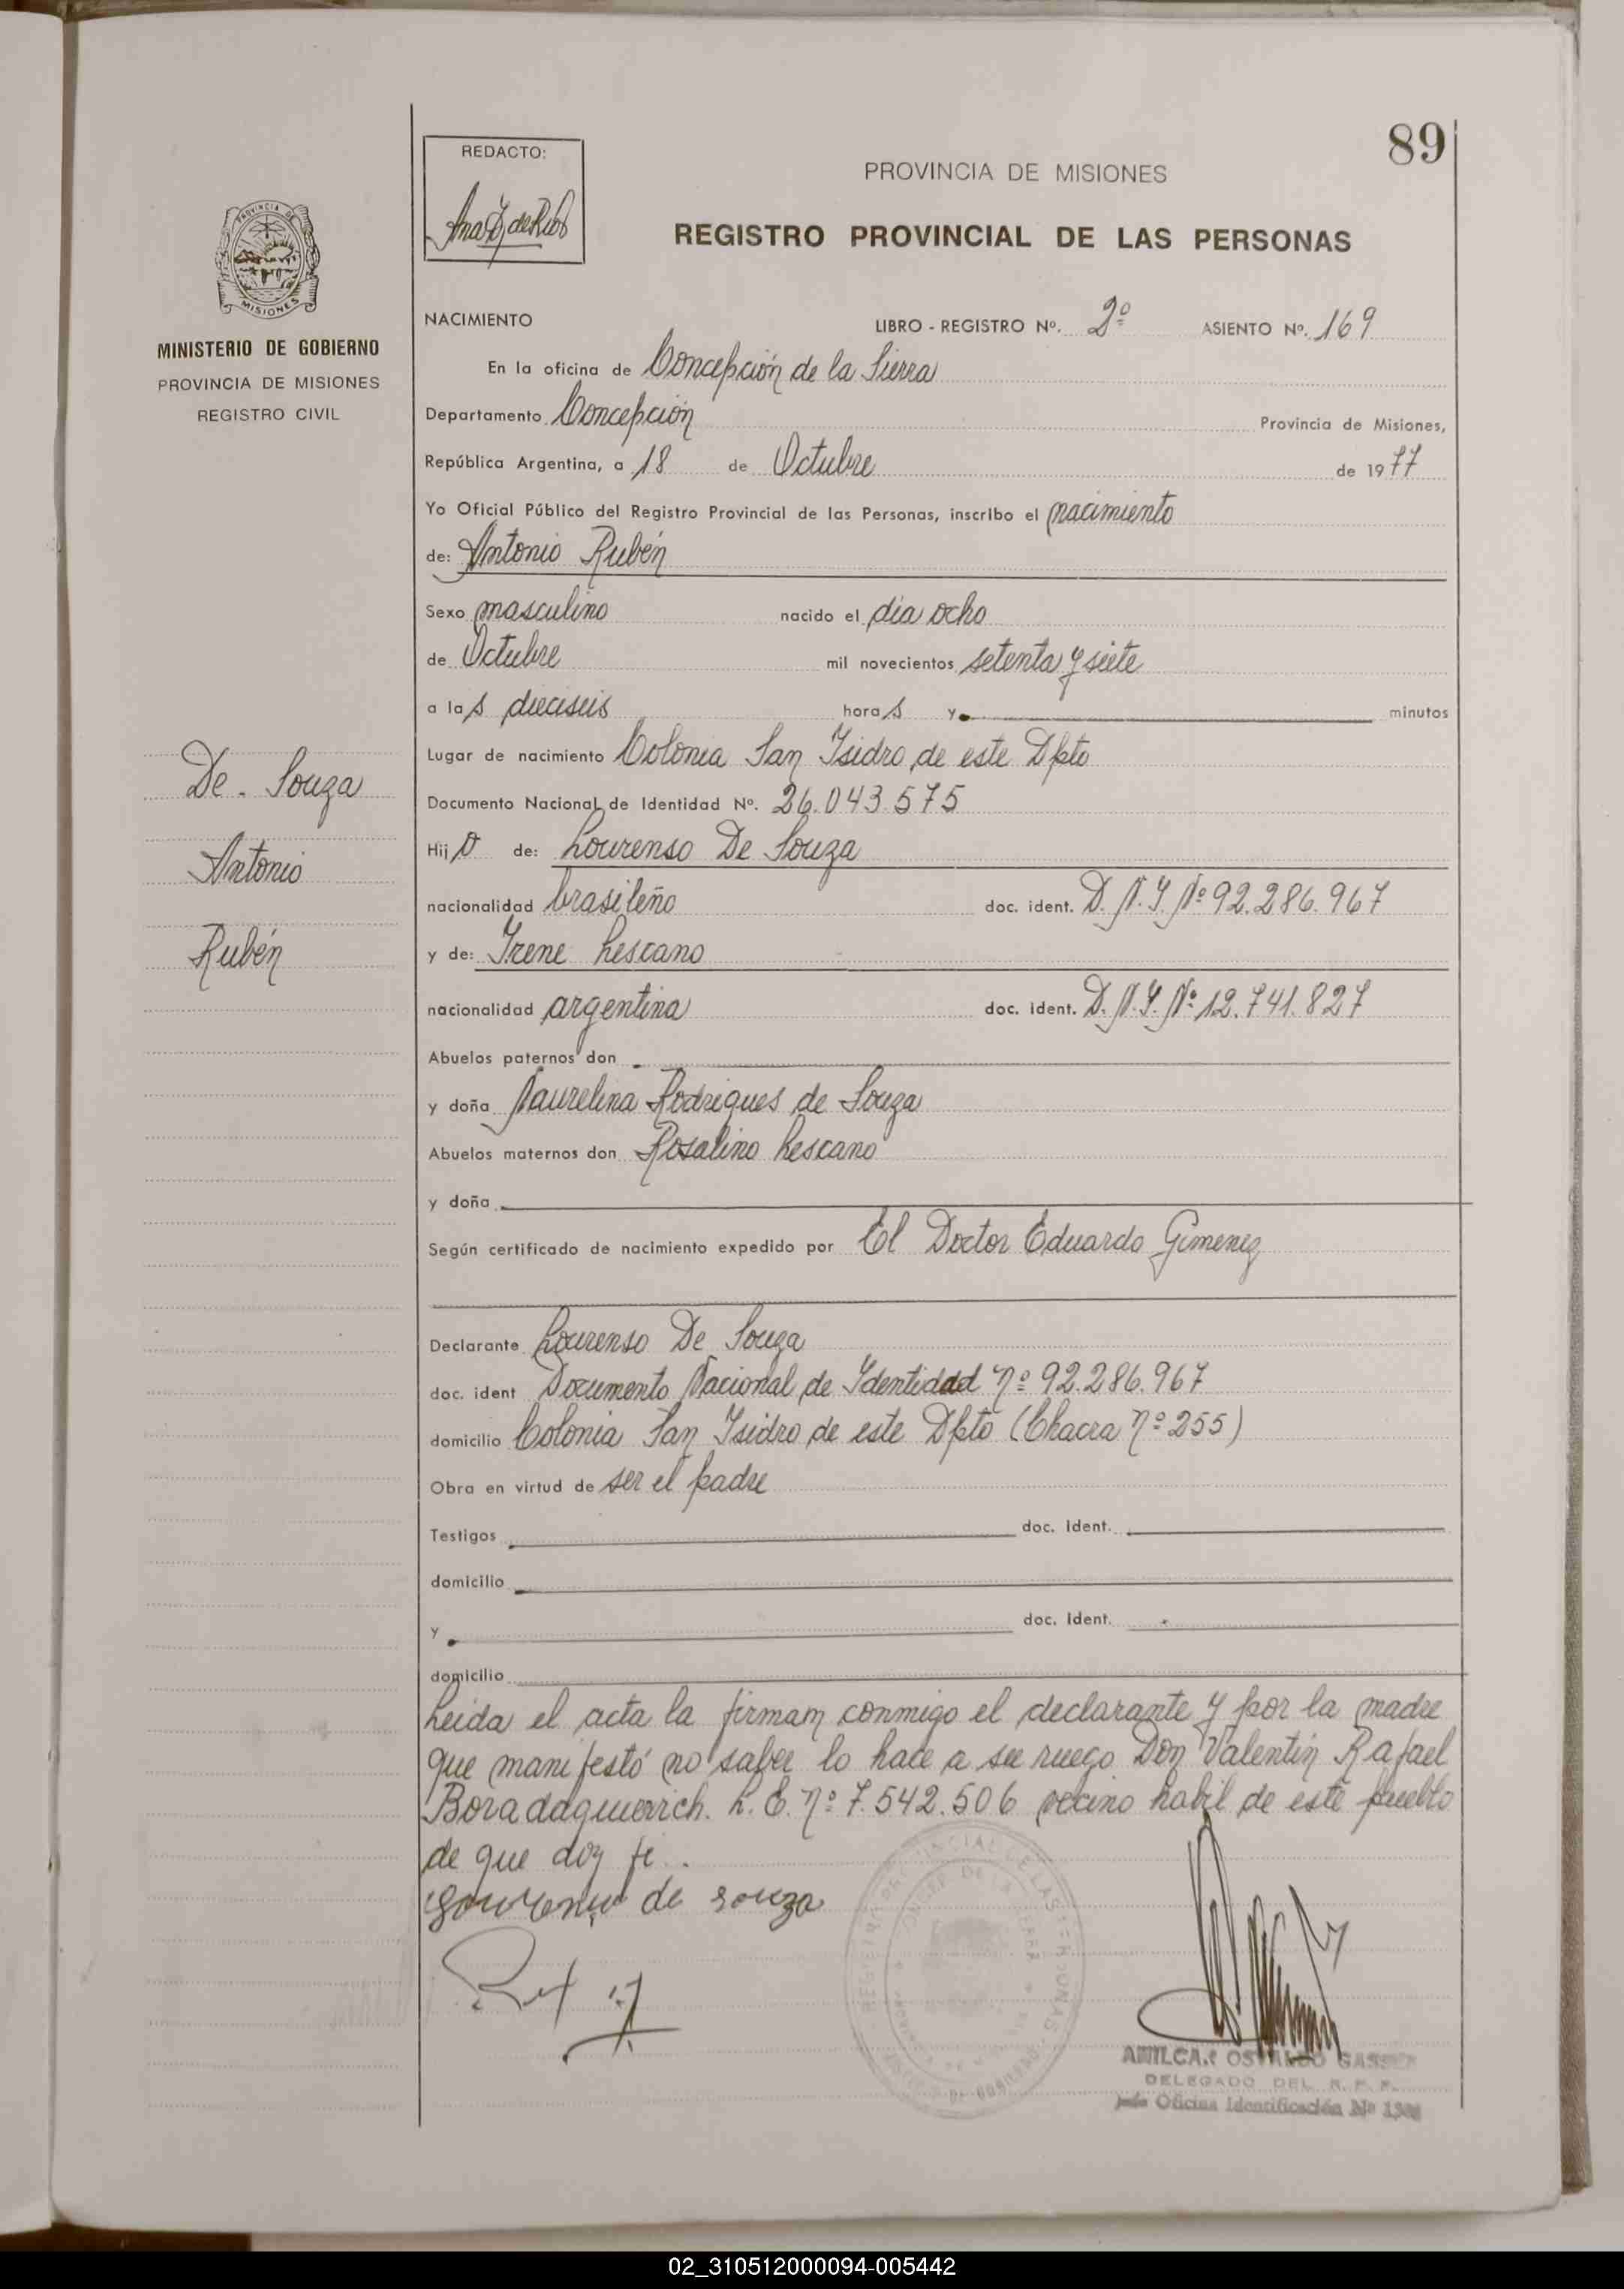 89
REDACTO:
PROVINCIA DE MISIONES
REGISTRO PROVINCIAL DE LAS PERSONAS
PROVINCIA DE
MISIONES
MINISTERIO DE GOBIERNO
PROVINCIA DE MISIONES
REGISTRO CIVIL
De. Souza
Antonio
Rubén
NACIMIENTO LIBRO - REGISTRO Nº. 2º ASIENTO Nº. 169
En la oficina de Concepción de la Sierra
Departamento Concepción Provincia de Misiones,
República Argentina, a 18 de Octubre de 1977
Yo Oficial Público del Registro Provincial de las Personas, inscribo el nacimiento
de: Antonio Rubén
Sexo masculino nacido el día ocho
de Octubre mil novecientos setenta y siete
a las dieciseis horas y minutos
Lugar de nacimiento Colonia San Isidro de este Dpto
Documento Nacional de Identidad Nº. 26.043.575
Hijo de: Lourenso De Souza
nacionalidad brasileño doc. ident. D.N.I. Nº 92.286.967
y de: Irene Lescano
nacionalidad argentina doc. ident. D.N.I. Nº 12.741.827
Abuelos paternos don
y doña Naurelina Rodrigues de Souza
Abuelos maternos don Rosalino Lescano
y doña
Según certificado de nacimiento expedido por El Doctor Eduardo Gimenez
Declarante Lourenso De Souza
doc. ident Documento Nacional de Identidad nº 92.286.967
domicilio Colonia San Isidro de este Dpto (Chacra nº 255)
Obra en virtud de ser el padre
Testigos doc. Ident.
domicilio
y doc. Ident.
domicilio
Leida el acta la firmam conmigo el declarante y por la madre
que manifestó no saber lo hace a su ruego Don Valentín Rafael
Boradaguerrich. L.E. nº 7.542.506 vecino habil de este pueblo
de que doy fe.
de souza
DELEGADO DEL R. P. P.
Oficina Identificación Nº
02_310512000094-005442